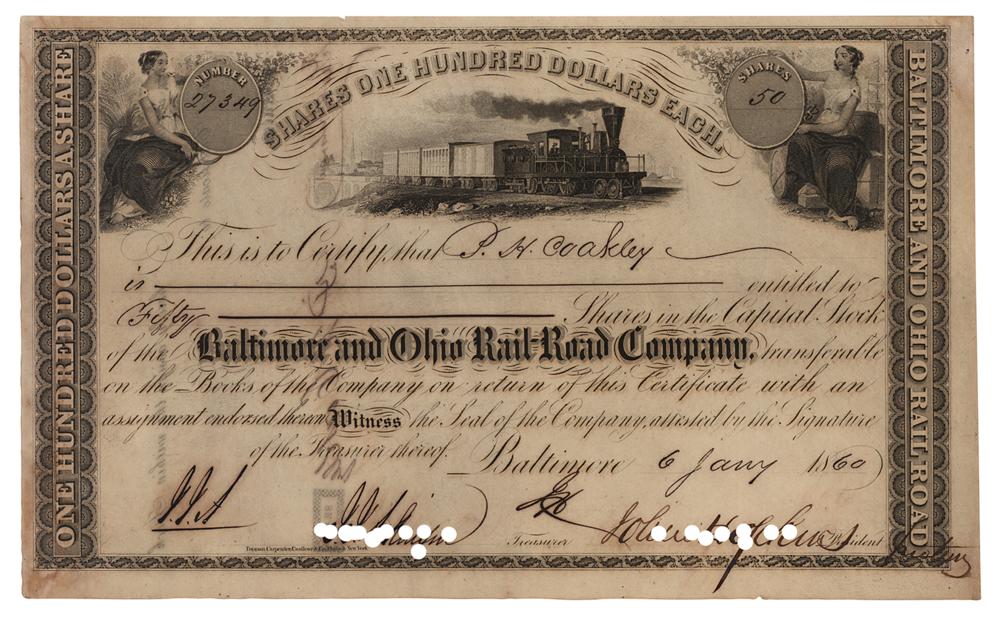 NUMBER
27349
SHARES ONE HUNDRED DOLLARS EACH.
SHARES
50
ONE HUNDRED DOLLARS A SHARE
BALTIMORE AND OHIO RAIL ROAD
This is to Certify that P. H. Coakley
is entitled to
Fifty Shares in the Capital Stock
of the Baltimore and Ohio Rail-Road Company, transferable
on the Books of the Company on return of this Certificate with an
assignment endorsed thereon Witness the Seal of the Company, attested by the Signature
of the Treasurer thereof. Baltimore 6 Jany 1860
Treasurer
President